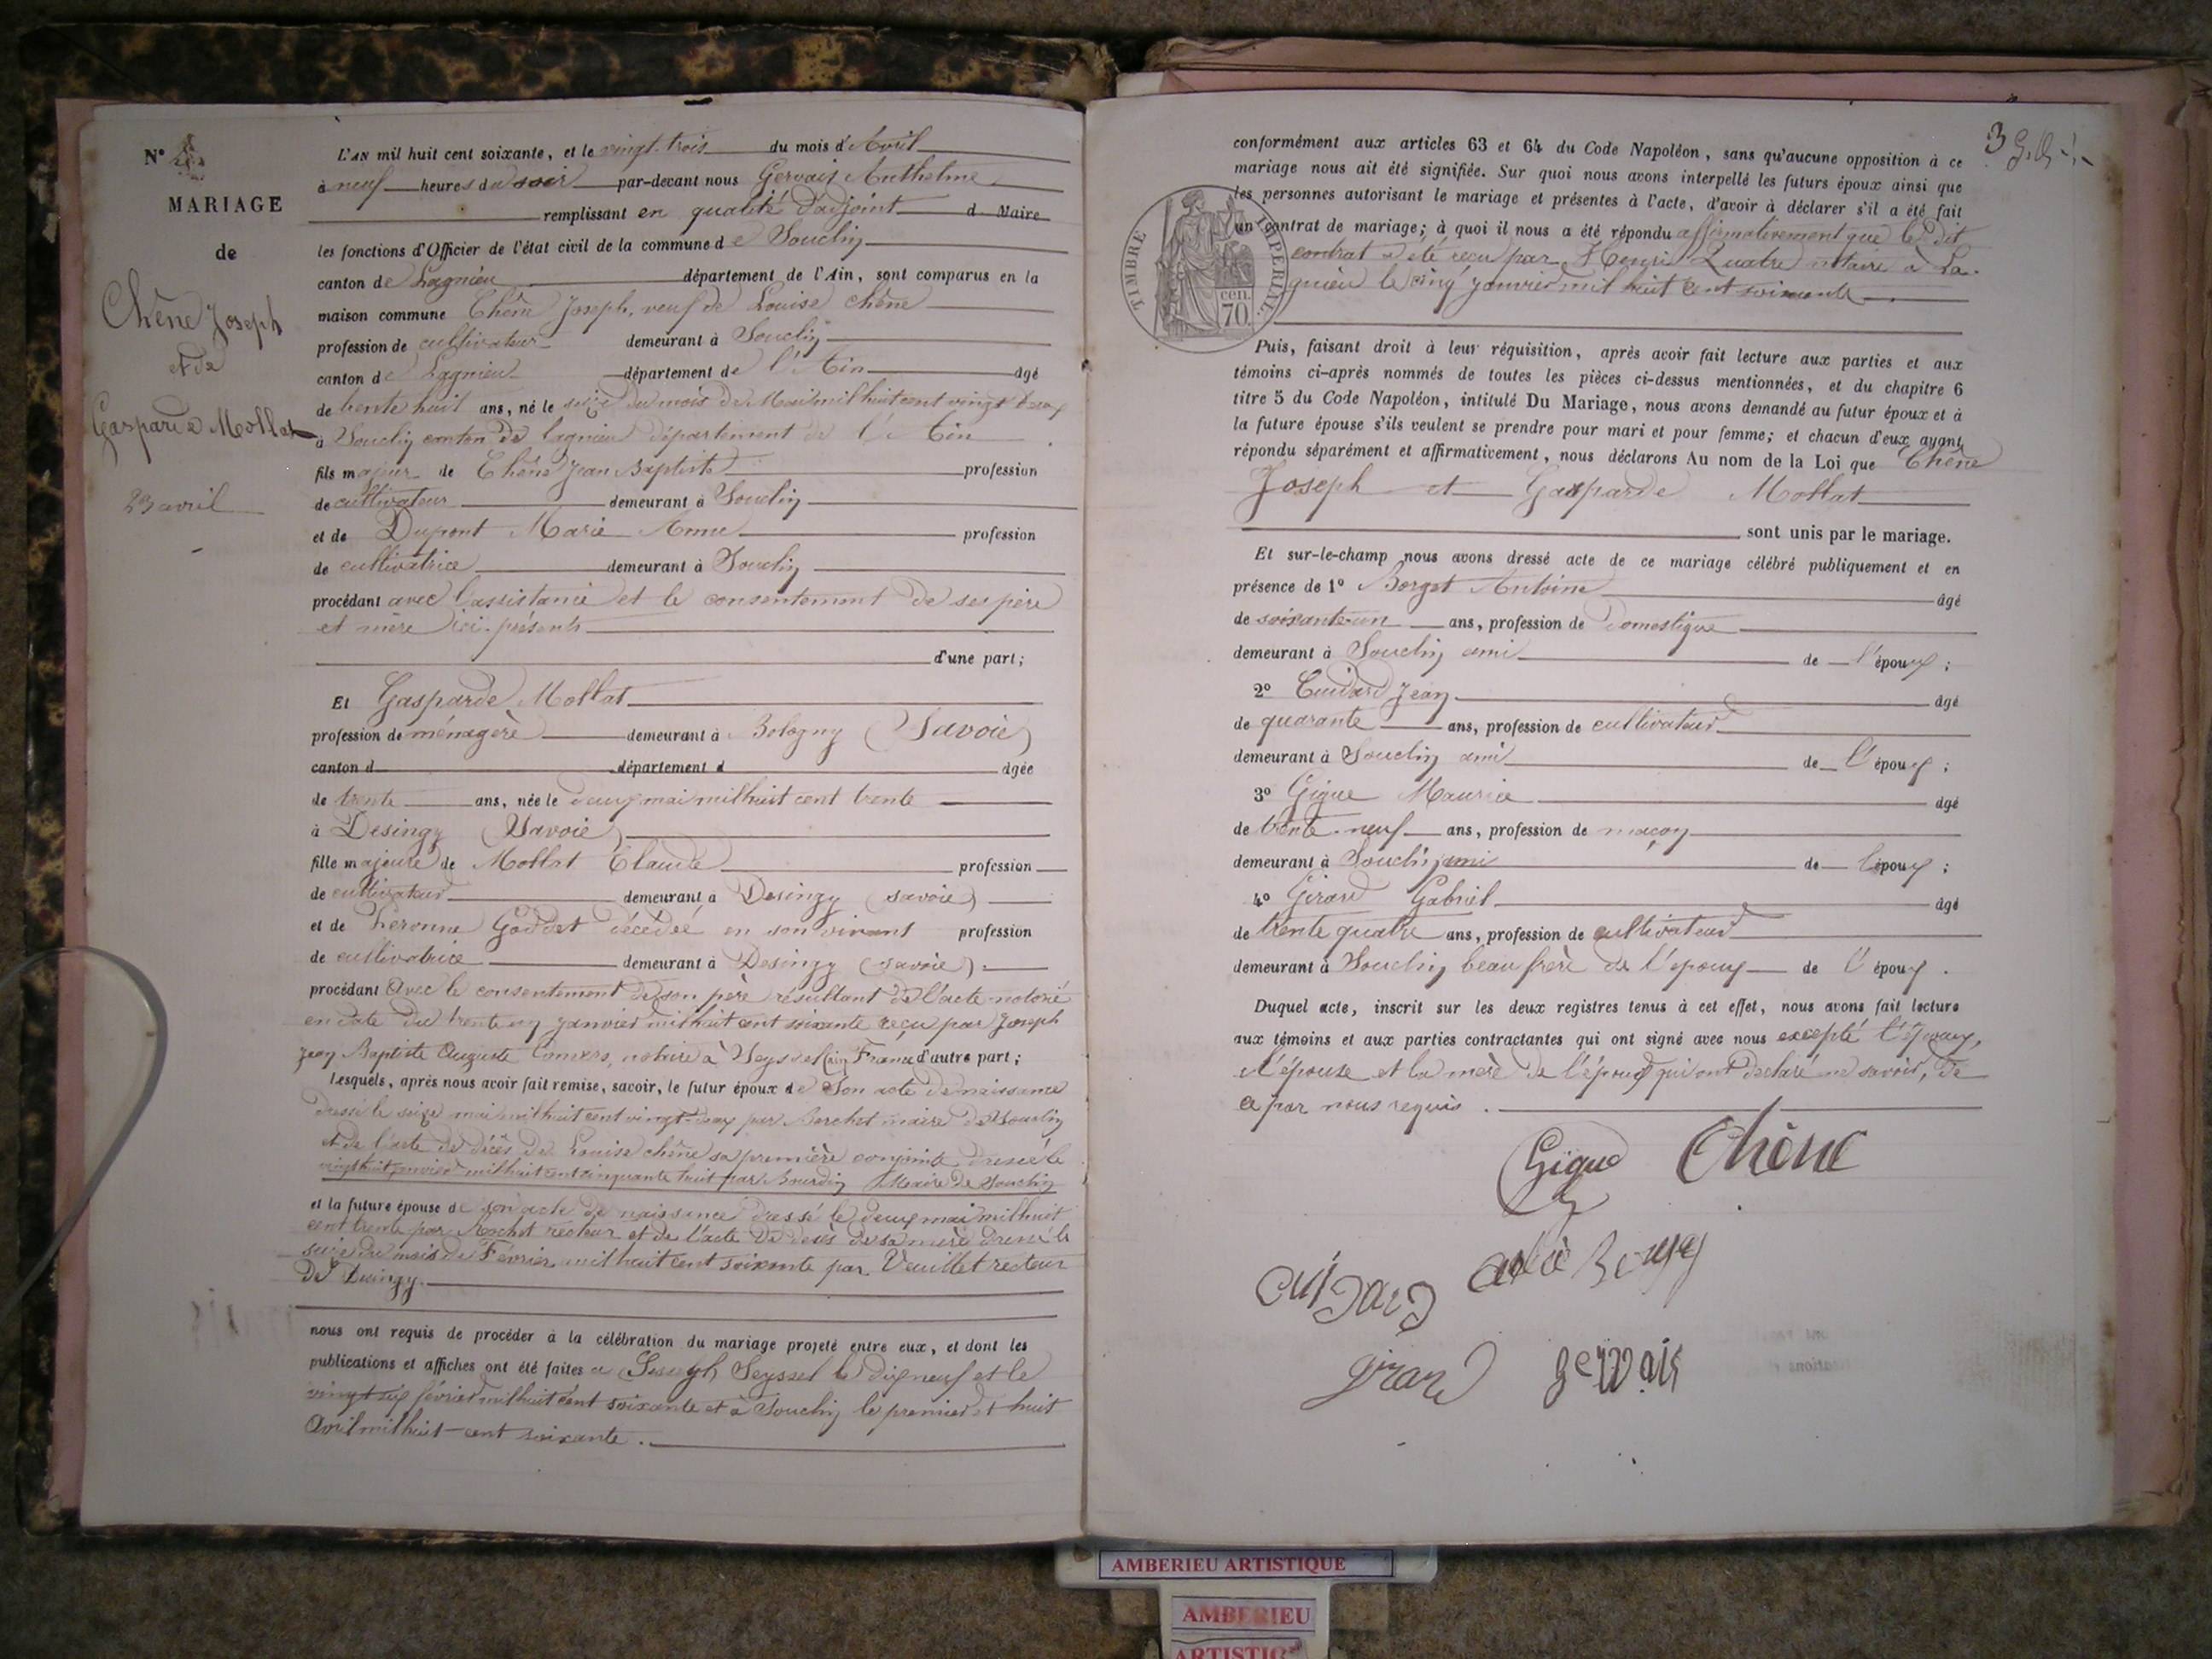 N° 4
MARIAGE
de
Chêne Joseph
et de
Gasparde Mollat
23 avril
L'AN mil huit cent soixante, et le vingt-trois du mois d'Avril
à neuf heures du soir par-devant nous Gervais Anthelme
remplissant en qualité d'adjoint d Maire
les fonctions d'Officier de l'état civil de la commune de Souclin
canton de Lagnieu département de l'Ain, sont comparus en la
maison commune Chêne Joseph, veuf de Louise Chêne
profession de cultivateur demeurant à Souclin
canton de Lagnieu département de l'Ain âgé
de trente huit ans, né le seize du mois de Mai mil huit cent vingt deux
à Souclin canton de Lagnieu département de l'Ain
fils majeur de Chêne Jean Baptiste profession
de cultivateur demeurant à Souclin
et de Dupont Marie Anne profession
de cultivatrice demeurant à Souclin
procédant avec l'assistance et le consentement de ses père
et mère ici présents
d'une part;
Et Gasparde Mollat
profession de ménagère demeurant à Bologny (Savoie)
canton d département d âgée
de trente ans, née le deux mai mil huit cent trente
à Desingy (Savoie)
fille majeure de Mollat Claude profession
de cultivateur demeurant à Desingy (savoie)
et de Goddet décédée en son vivant profession
de cultivatrice demeurant à Desingy (savoie)
procédant avec le consentement de son père résultant de l'acte notarié
en date du trente un janvier mil huit cent soixante reçu par Joseph
Jean Baptiste Auguste notaire à France d'autre part;
Lesquels, après nous avoir fait remise, savoir, le futur époux de son acte de naissance
dressé le seize mai mil huit cent vingt-deux par maire de Souclin
et de l'acte de décès de Louise chêne sa première conjointe dressé le
vingt huit janvier mil huit cent cinquante huit par Bourdin Maire de Souclin
et la future épouse de son acte de naissance dressé le deux mai mil huit
cent trente par recteur et de l'acte de décès de sa mère dressé le
seize du mois de Février mil huit cent soixante par Veuillet recteur
de Desingy.
nous ont requis de procéder à la célébration du mariage projeté entre eux, et dont les
publications et affiches ont été faites à Seyssel le dix neuf et le
vingt six février mil huit cent soixante et à Souclin le premier et huit
Avril mil huit-cent soixante.
3
conformément aux articles 63 et 64 du Code Napoléon, sans qu'aucune opposition à ce
mariage nous ait été signifiée. Sur quoi nous avons interpellé les futurs époux ainsi que
les personnes autorisant le mariage et présentes à l'acte, d'avoir à déclarer s'il a été fait
un contrat de mariage; à quoi il nous a été répondu affirmativement que le dit
contrat a été reçu par Henri Quatre notaire à La-
gnieu le cinq janvier mil huit cent soixante
TIMBRE IMPÉRIAL
70 cen.
Puis, faisant droit à leur réquisition, après avoir fait lecture aux parties et aux
témoins ci-après nommés de toutes les pièces ci-dessus mentionnées, et du chapitre 6
titre 5 du Code Napoléon, intitulé Du Mariage, nous avons demandé au futur époux et à
la future épouse s'ils veulent se prendre pour mari et pour femme; et chacun d'eux ayant
répondu séparément et affirmativement, nous déclarons Au nom de la Loi que Chêne
Joseph et Gasparde Mollat
sont unis par le mariage.
Et sur-le-champ nous avons dressé acte de ce mariage célébré publiquement et en
présence de 1° Borget Antoine âgé
de soixante-un ans, profession de Domestique
demeurant à Souclin ami de l'époux;
2° Cuidard Jean âgé
de quarante ans, profession de cultivateur
demeurant à Souclin ami de l'époux;
3° Gigue Maurice âgé
de trente-neuf ans, profession de maçon
demeurant à Souclin ami de l'époux;
4° Girard Gabriel âgé
de trente quatre ans, profession de cultivateur
demeurant à Souclin beau frère de l'epoux de l'époux.
Duquel acte, inscrit sur les deux registres tenus à cet effet, nous avons fait lecture
aux témoins et aux parties contractantes qui ont signé avec nous excepté l'époux,
l'épouse et la mère de l'époux qui ont declaré ne savoir, de
ce par nous requis.
Gigue Chêne
Cuidard
girard gervais
AMBERIEU ARTISTIQUE
AMBERIEU
ARTISTIQUE